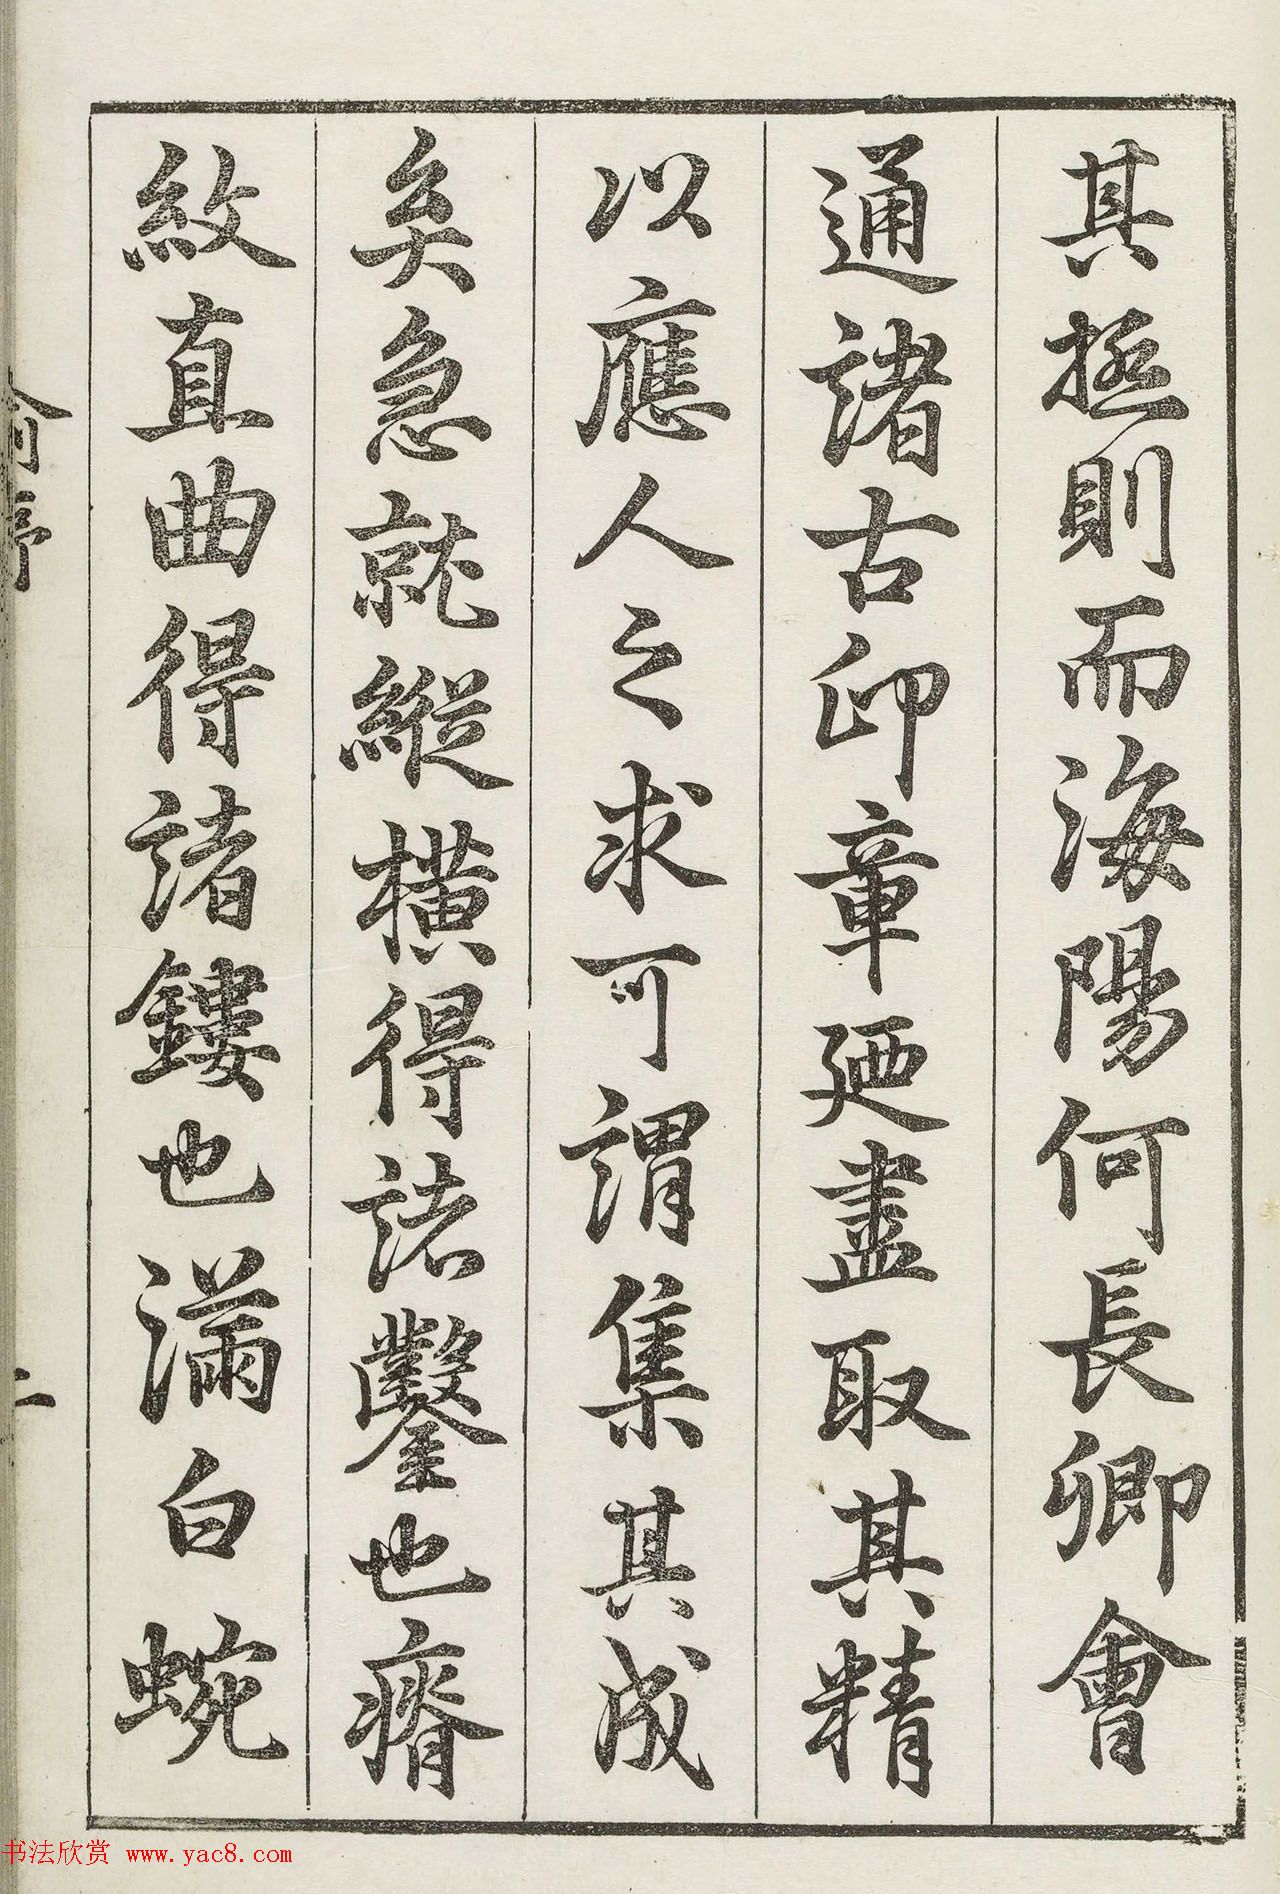 其極則而海陽何長卿會
通諸古印章廼盡取其精
以應人之求可謂集其成
矣急就縱橫得諸鑿也瘠
紋直曲得諸鏤也滿白蜿
序
二
书法欣赏 www.yac8.com